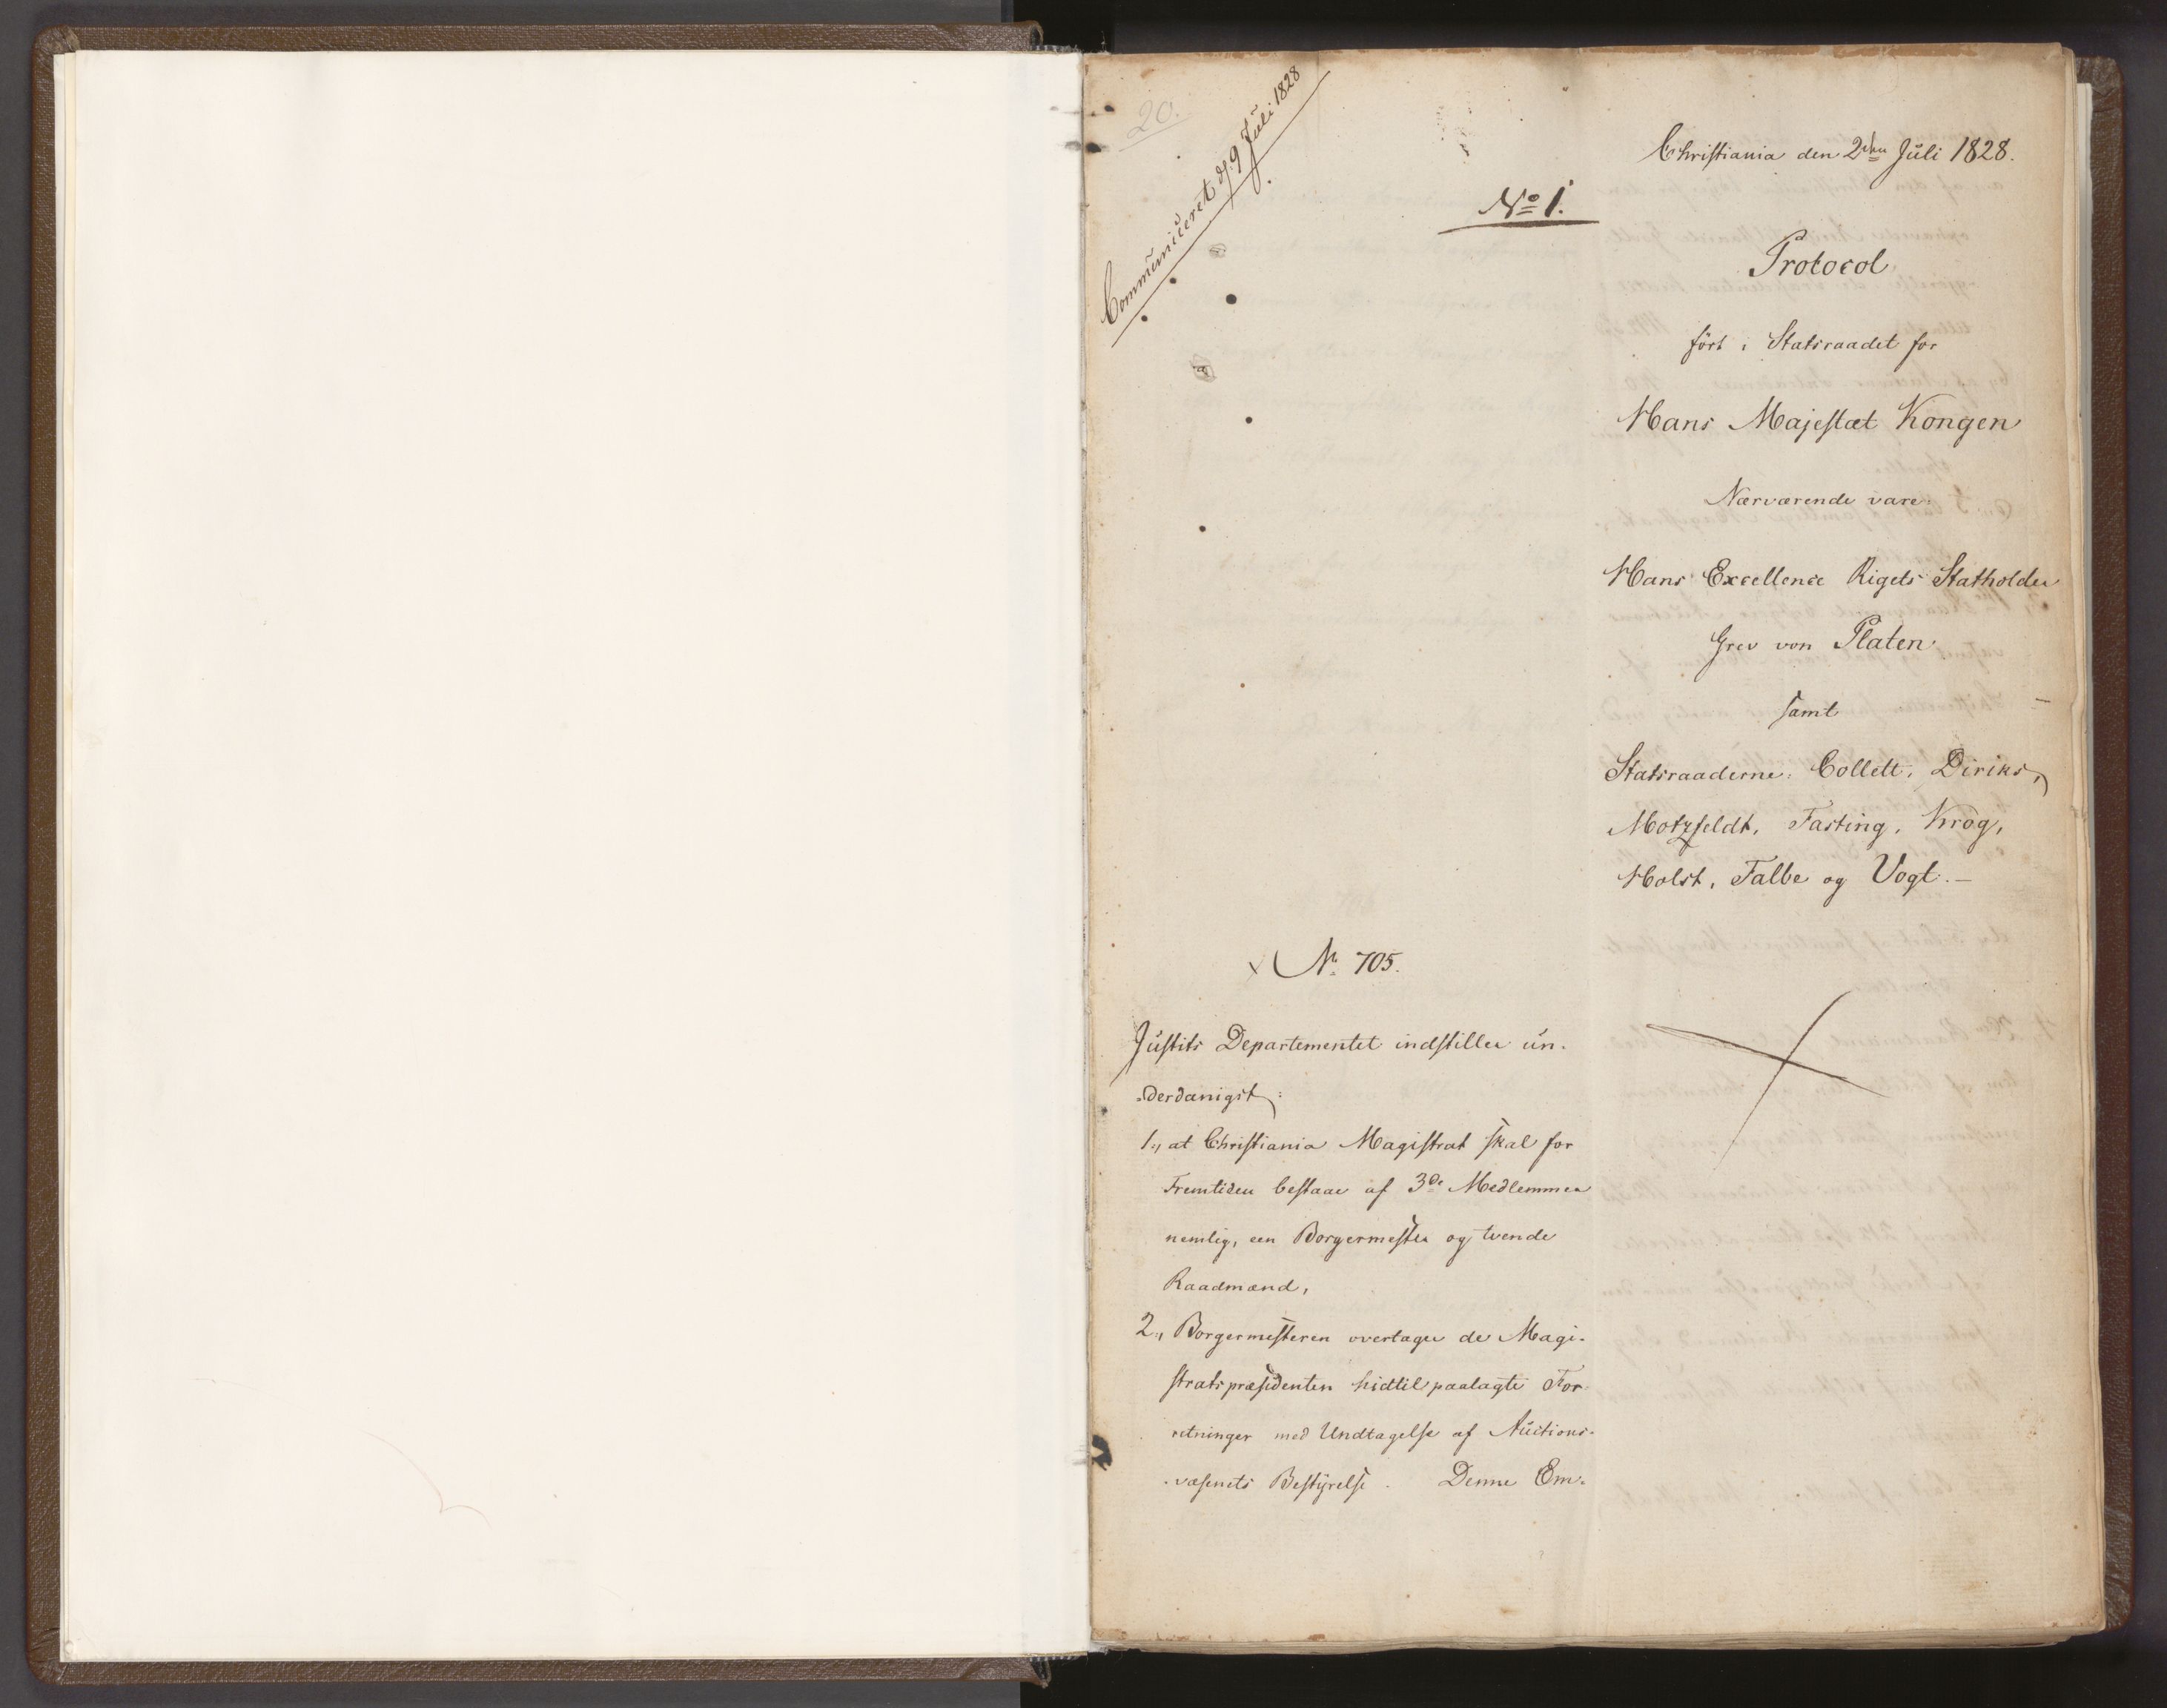 20.
Communiceret d. 9 Juli 1828
Christiania den 2den Juli 1828.
No 1.
Protocol
ført i Statsraadet for
Hans Majestæt Kongen
Nærværende vare:
Hans Excellence Rigets Statholder
Grev von Platen
samt
Statsraaderne: Collett, Diriks,
Motzfeldt, Fasting, Krog,
Holst, Falbe og Vogt. —
N. 705.
Justits Departementet indstiller un-
-derdanigst:
1., at Christiania Magistrat skal for
Fremtiden bestaae af 3de Medlemmer
nemlig, een Borgermester og tvende
Raadmænd,
2., Borgermesteren overtager de Magi-
stratspræsidenten hidtil paalagte For-
retninger med Undtagelse af Auctions-
-væsenets Bestyrelse. Denne Em-